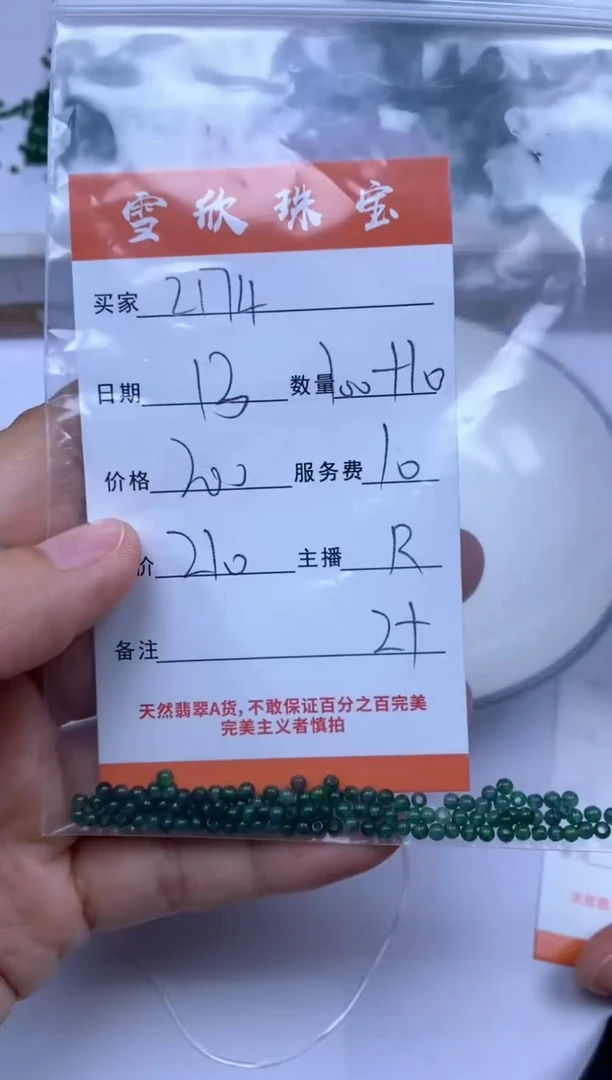 雪欣珠宝
买家 2174
日期 13 数量 100+10
价格 200 服务费 10
价 210 主播 R
备注 2+
天然翡翠A货,不敢保证百分之百完美
完美主义者慎拍